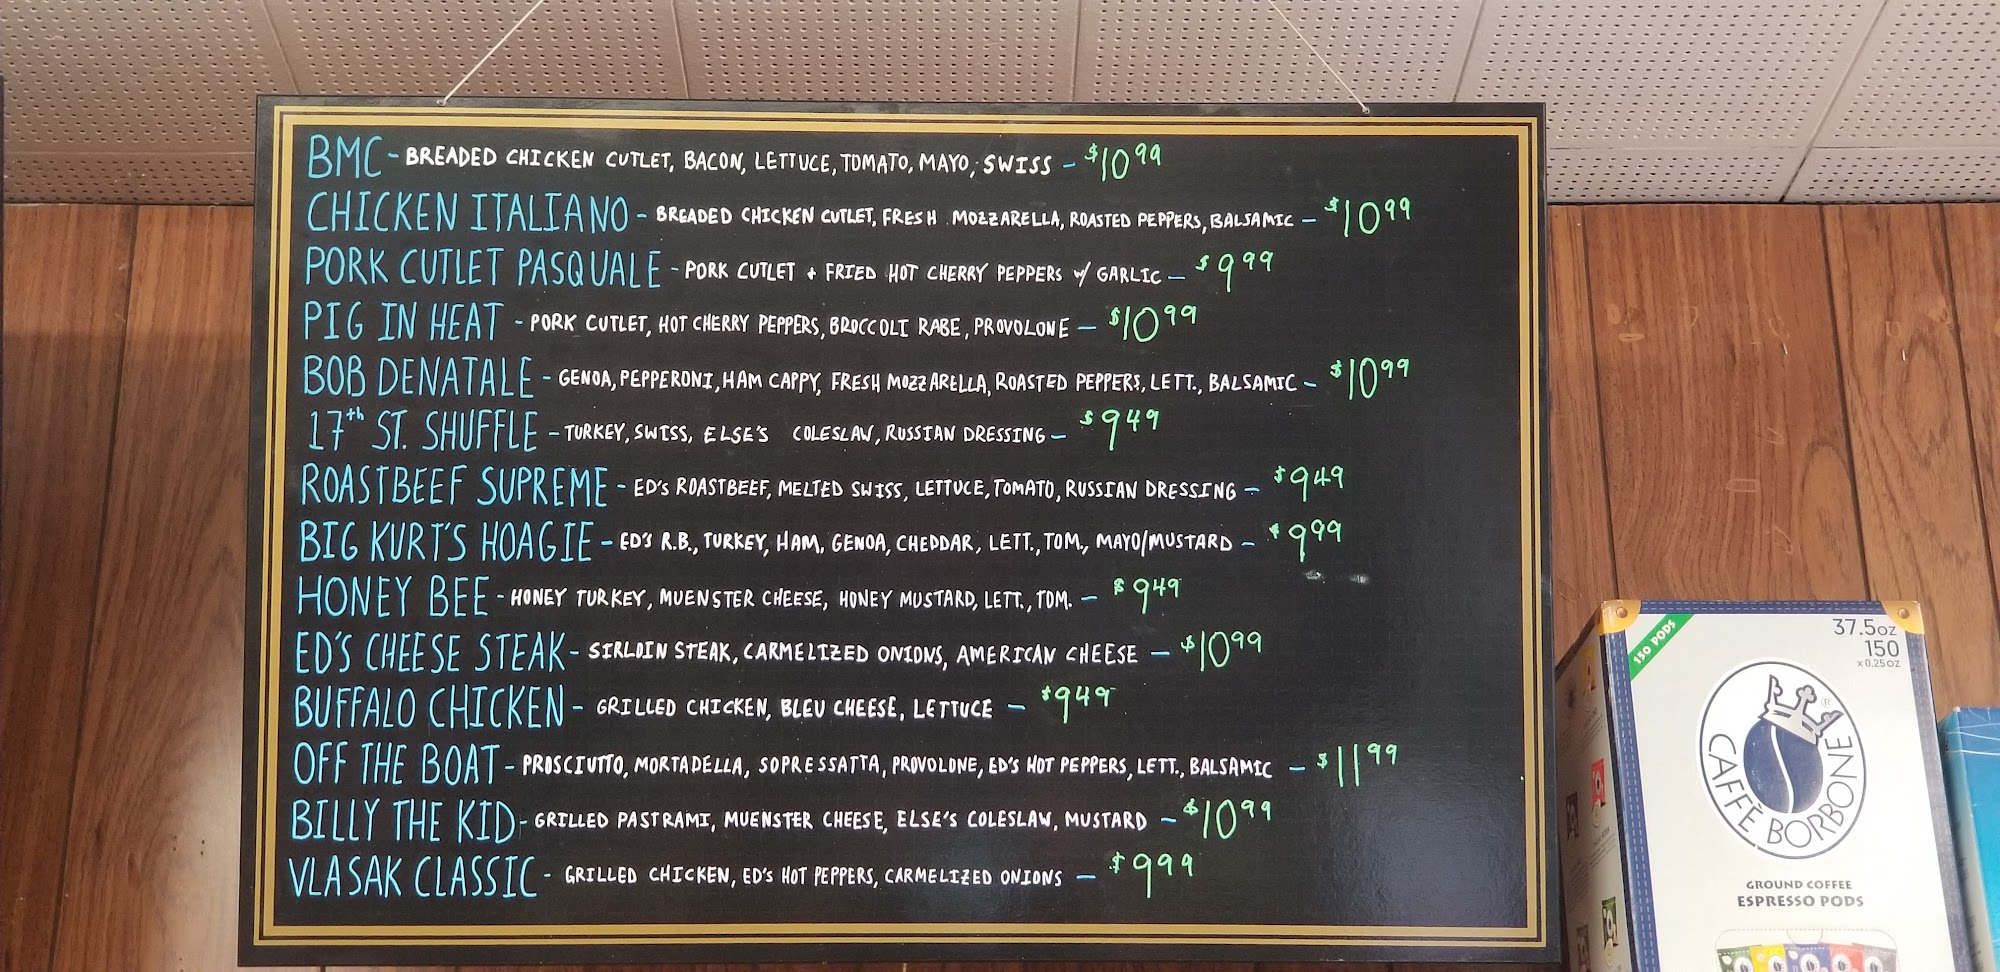 BMC - BREADED CHICKEN CUTLET, BACON, LETTUCE, TOMATO, MAYO, SWISS - $10.99
CHICKEN ITALIANO - BREADED CHICKEN CUTLET, FRESH MOZZARELLA, ROASTED PEPPERS, BALSAMIC - $10.99
PORK CUTLET PASQUALE - PORK CUTLET + FRIED HOT CHERRY PEPPERS w/ GARLIC - $9.99
PIG IN HEAT - PORK CUTLET, HOT CHERRY PEPPERS, BROCCOLI RABE, PROVOLONE - $10.99
BOB DENATALE - GENOA, PEPPERONI, HAM CAPPY, FRESH MOZZARELLA, ROASTED PEPPERS, LETT., BALSAMIC - $10.99
17th ST. SHUFFLE - TURKEY, SWISS, ELSE'S COLESLAW, RUSSIAN DRESSING - $9.49
ROASTBEEF SUPREME - ED'S ROASTBEEF, MELTED SWISS, LETTUCE, TOMATO, RUSSIAN DRESSING - $9.49
BIG KURT'S HOAGIE - ED'S R.B., TURKEY, HAM, GENOA, CHEDDAR, LETT., TOM., MAYO/MUSTARD - $9.99
HONEY BEE - HONEY TURKEY, MUENSTER CHEESE, HONEY MUSTARD, LETT., TOM. - $9.49
ED'S CHEESE STEAK - SIRLOIN STEAK, CARMELIZED ONIONS, AMERICAN CHEESE - $10.99
BUFFALO CHICKEN - GRILLED CHICKEN, BLEU CHEESE, LETTUCE - $9.49
OFF THE BOAT - PROSCIUTTO, MORTADELLA, SOPRESSATTA, PROVOLONE, ED'S HOT PEPPERS, LETT., BALSAMIC - $11.99
BILLY THE KID - GRILLED PASTRAMI, MUENSTER CHEESE, ELSE'S COLESLAW, MUSTARD - $10.99
VLASAK CLASSIC - GRILLED CHICKEN, ED'S HOT PEPPERS, CARMELIZED ONIONS - $9.99
150 PODS
37.5oz
150
x 0.25oz
CAFFÈ BORBONE ®
GROUND COFFEE
ESPRESSO PODS